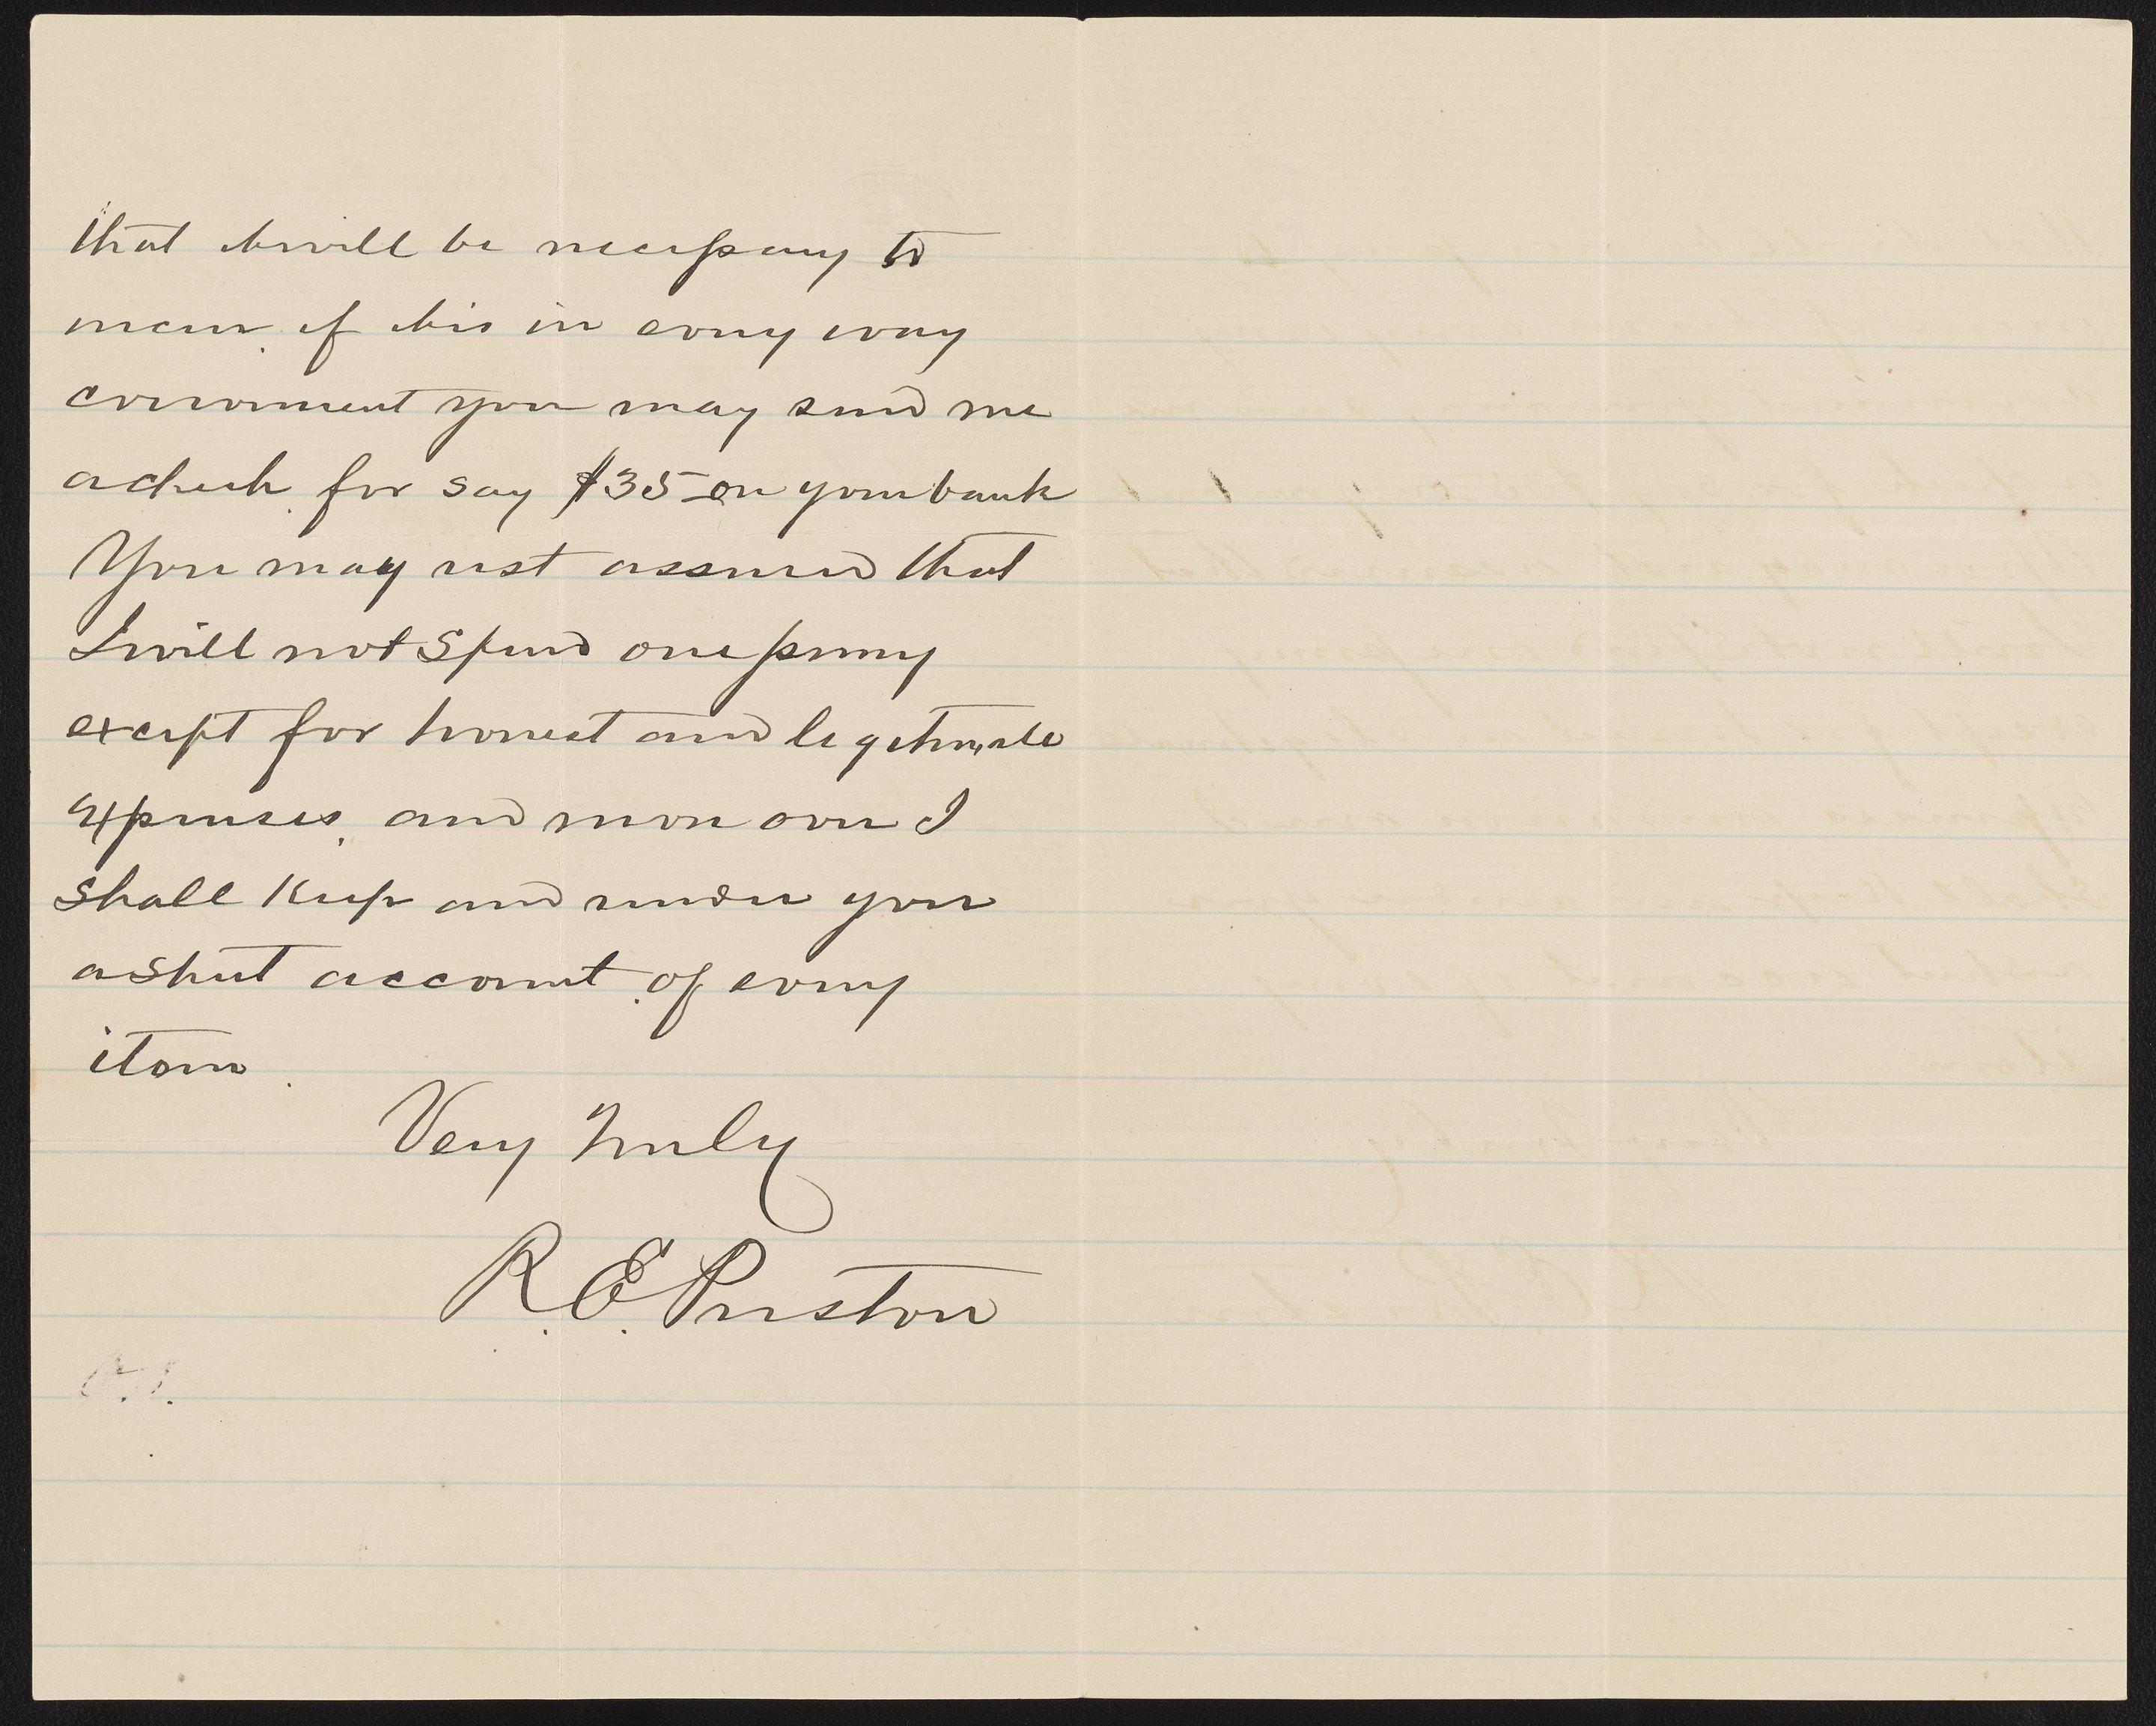 that it will be necessary to
incur, if it is in every way
convenient you may send me
a check, for say $35 on your bank
You may rest assured that
I will not spend one penny
except for honest and legitimate
expenses, and more over I
shall keep and render you
a strict account, of every
item.
Very Truly
R. E. Preston